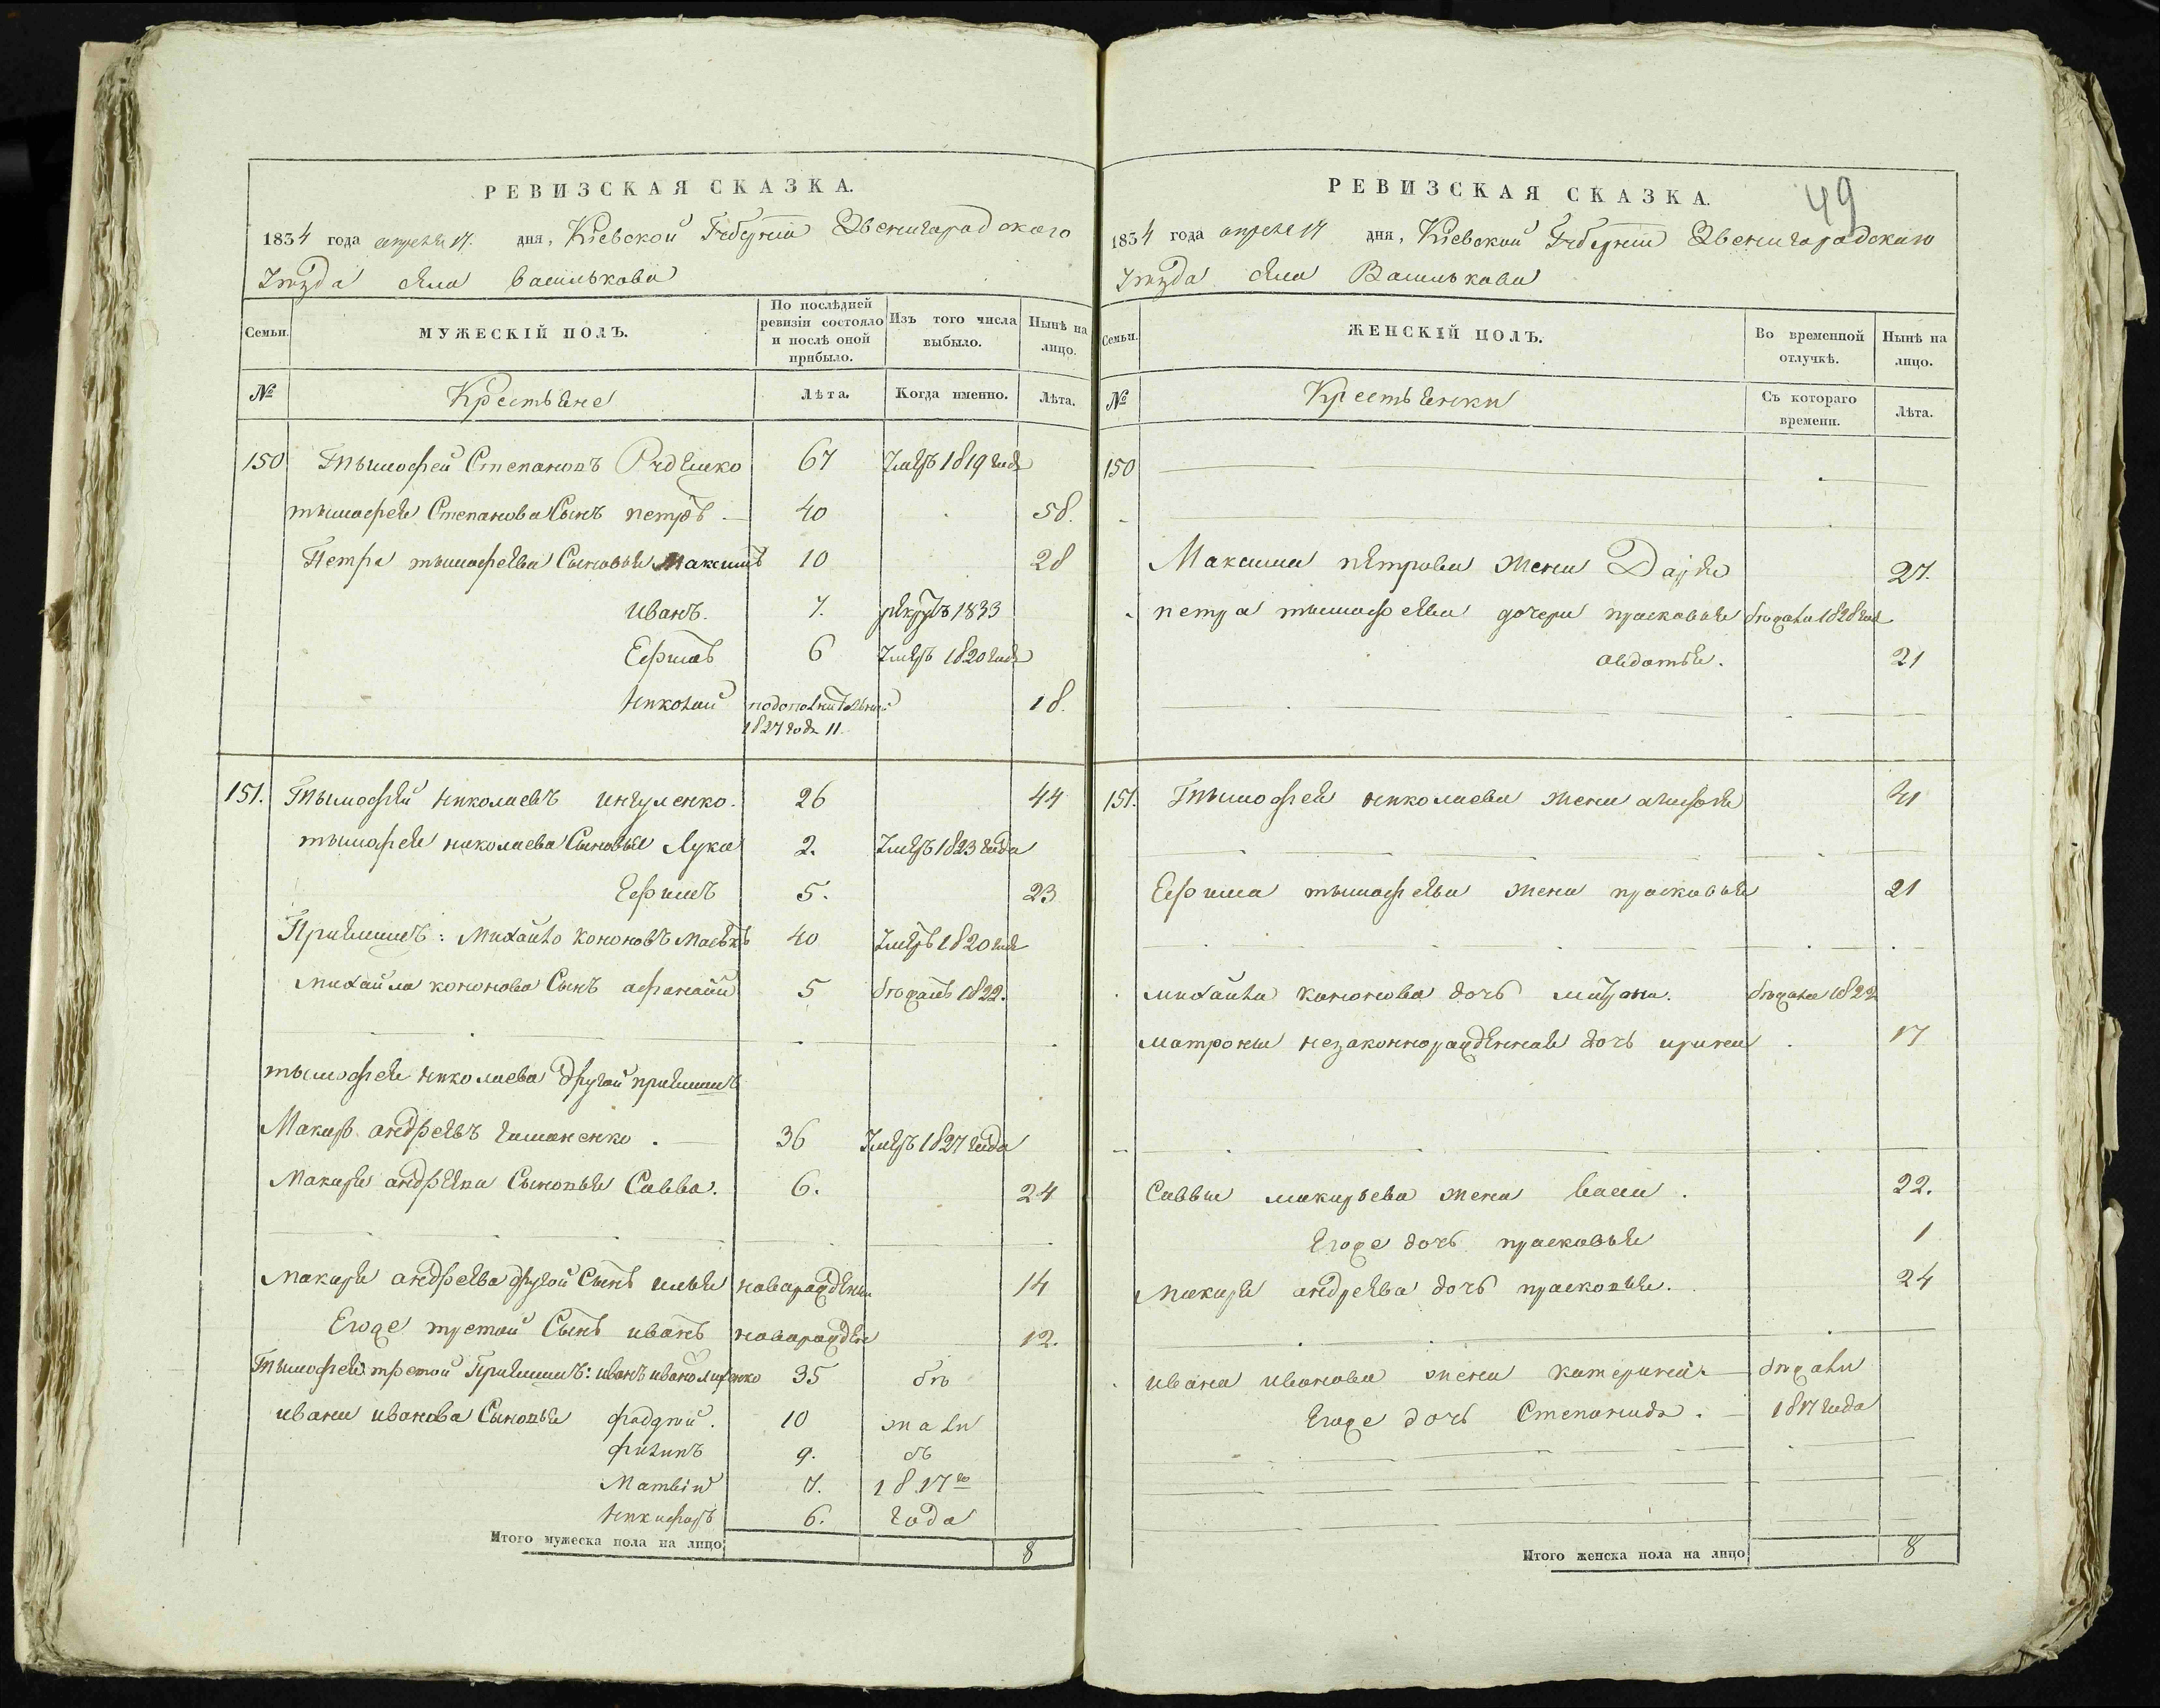 РЕВИЗСКАЯ СКАЗКА.
1834 года апреля 17. дня, Кіевской Губерніи Звенигородского
Уѣзда села Василькова
Семьи. МУЖЕСКІЙ ПОЛЪ. По послѣдней ревизіи состояло и послѣ оной прибыло. Изъ того числа выбыло. Нынѣ на лицо.
№ Крестьяне Лѣта. Когда именно. Лѣта.
150 Тымофей Степановъ 67 Умеръ 1819 года
тымофея Степанова Сынъ петръ 40 58.
Петра тымофеева Сыновья Максимъ 10 28
Иванъ. 7. рекрутъ 1833
Ефимъ 6 Умеръ 1820 года
Николай 18.
1827 года 11.
151. Тымофей Николаевъ ингуленко. 26 44
тымофея николаева Сыновья Лука 2. Умеръ 1823 года
Ефимъ 5. 23
Приймишъ: Михайло Кононовъ 40 Умеръ 1820 года
Михайла кононова Сынъ афанасий 5 бежалъ 1822.
тымофея николаева другой приймишъ
Макаръ андреевъ гамоненко. 36 Умеръ 1827 года
Макара андреева Сыновья Савва. 6. 24
Макара андреева другой Сынъ илья новорожденъ 14
Егоже третой Сынъ иванъ новорожденъ 12.
Тымофея третой Приймишъ: иванъ 35 бе
ивана иванова Сыновья 10 жали
филипъ 9. въ
Матвій 7. 1817го
Никифоръ 6. года
Итого мужеска пола на лицо 8
49
РЕВИЗСКАЯ СКАЗКА.
1834 года апреля 17 дня, Кіевской Губерніи Звенигородского
Уѣзда села Василькова
Семьи. ЖЕНСКІЙ ПОЛЪ. Во временной отлучкѣ. Нынѣ на лицо.
№ Крестьянки Съ котораго времени. Лѣта.
150
Максима петрова жена Дарья 27.
петра тымофеева дочери прасковья бежала 1828 года
авдотья. 21
151. Тымофея николаева жена 41
Ефима тымофеева жена прасковья 21
михайла кононова дочь матрона. бежала 1822
матроны незаконнорожденная дочь ирина 17
Саввы макарьева жена васса. 22.
Егоже дочь прасковья 1
Макара андреева дочь прасковья. 24
ивана иванова жена катерина бежали
Егоже дочь Степанида. 1817 года
Итого женска пола на лицо 8